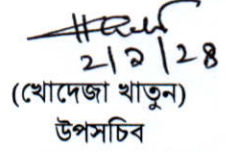 ২/১/২৪
(খোদেজা খাতুন)
উপসচিব